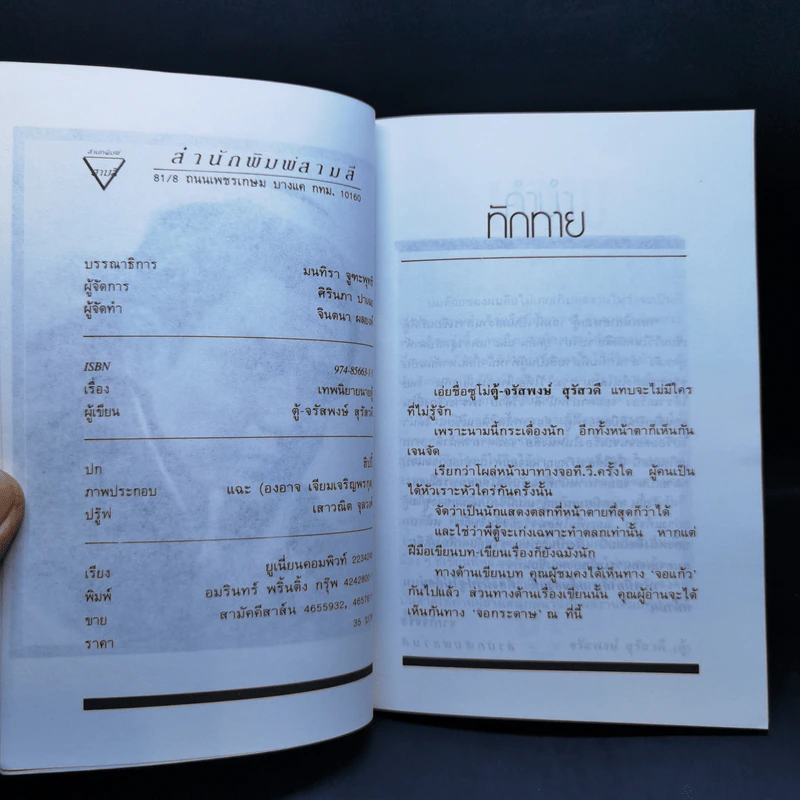 สำนักพิมพ์
สามสี
สำนักพิมพ์สามสี
81/8 ถนนเพชรเกษม บางแค กทม. 10160
บรรณาธิการ มนทิรา จูฑะพุทธิ
ผู้จัดการ ศิรินภา
ผู้จัดทำ จินตนา
ISBN 974-85663-
เรื่อง เทพนิยายนายตู้
ผู้เขียน ตู้-จรัสพงษ์ สุรัสวดี
ปก ฮิปปี้
ภาพประกอบ แฉะ (องอาจ เจียมเจริญพรกุล
ปรู๊ฟ เสาวณิต จุลวงศ์
เรียง ยูเนี่ยนคอมพิวท์ 223424
พิมพ์ อมรินทร์ พริ้นติ้ง กรุ๊พ 4242800
ขาย สามัคคีสาส์น 4655932, 46576
ราคา 35 บาท
ทักทาย
เอ่ยชื่อซูโม่ตู้-จรัสพงษ์ สุรัสวดี แทบจะไม่มีใคร
ที่ไม่รู้จัก
เพราะนามนี้กระเดื่องนัก อีกทั้งหน้าตาก็เห็นกัน
เจนจัด
เรียกว่าโผล่หน้ามาทางจอที.วี.ครั้งใด ผู้คนเป็น
ได้หัวเราะหัวใคร่กันครั้งนั้น
จัดว่าเป็นนักแสดงตลกที่หน้าตายที่สุดก็ว่าได้
และใช่ว่าพี่ตู้จะเก่งเฉพาะทำตลกเท่านั้น หากแต่
ฝีมือเขียนบท-เขียนเรื่องก็ยังฉมังนัก
ทางด้านเขียนบท คุณผู้ชมคงได้เห็นทาง 'จอแก้ว'
กันไปแล้ว ส่วนทางด้านเรื่องเขียนนั้น คุณผู้อ่านจะได้
เห็นกันทาง 'จอกระดาษ' ณ ที่นี้